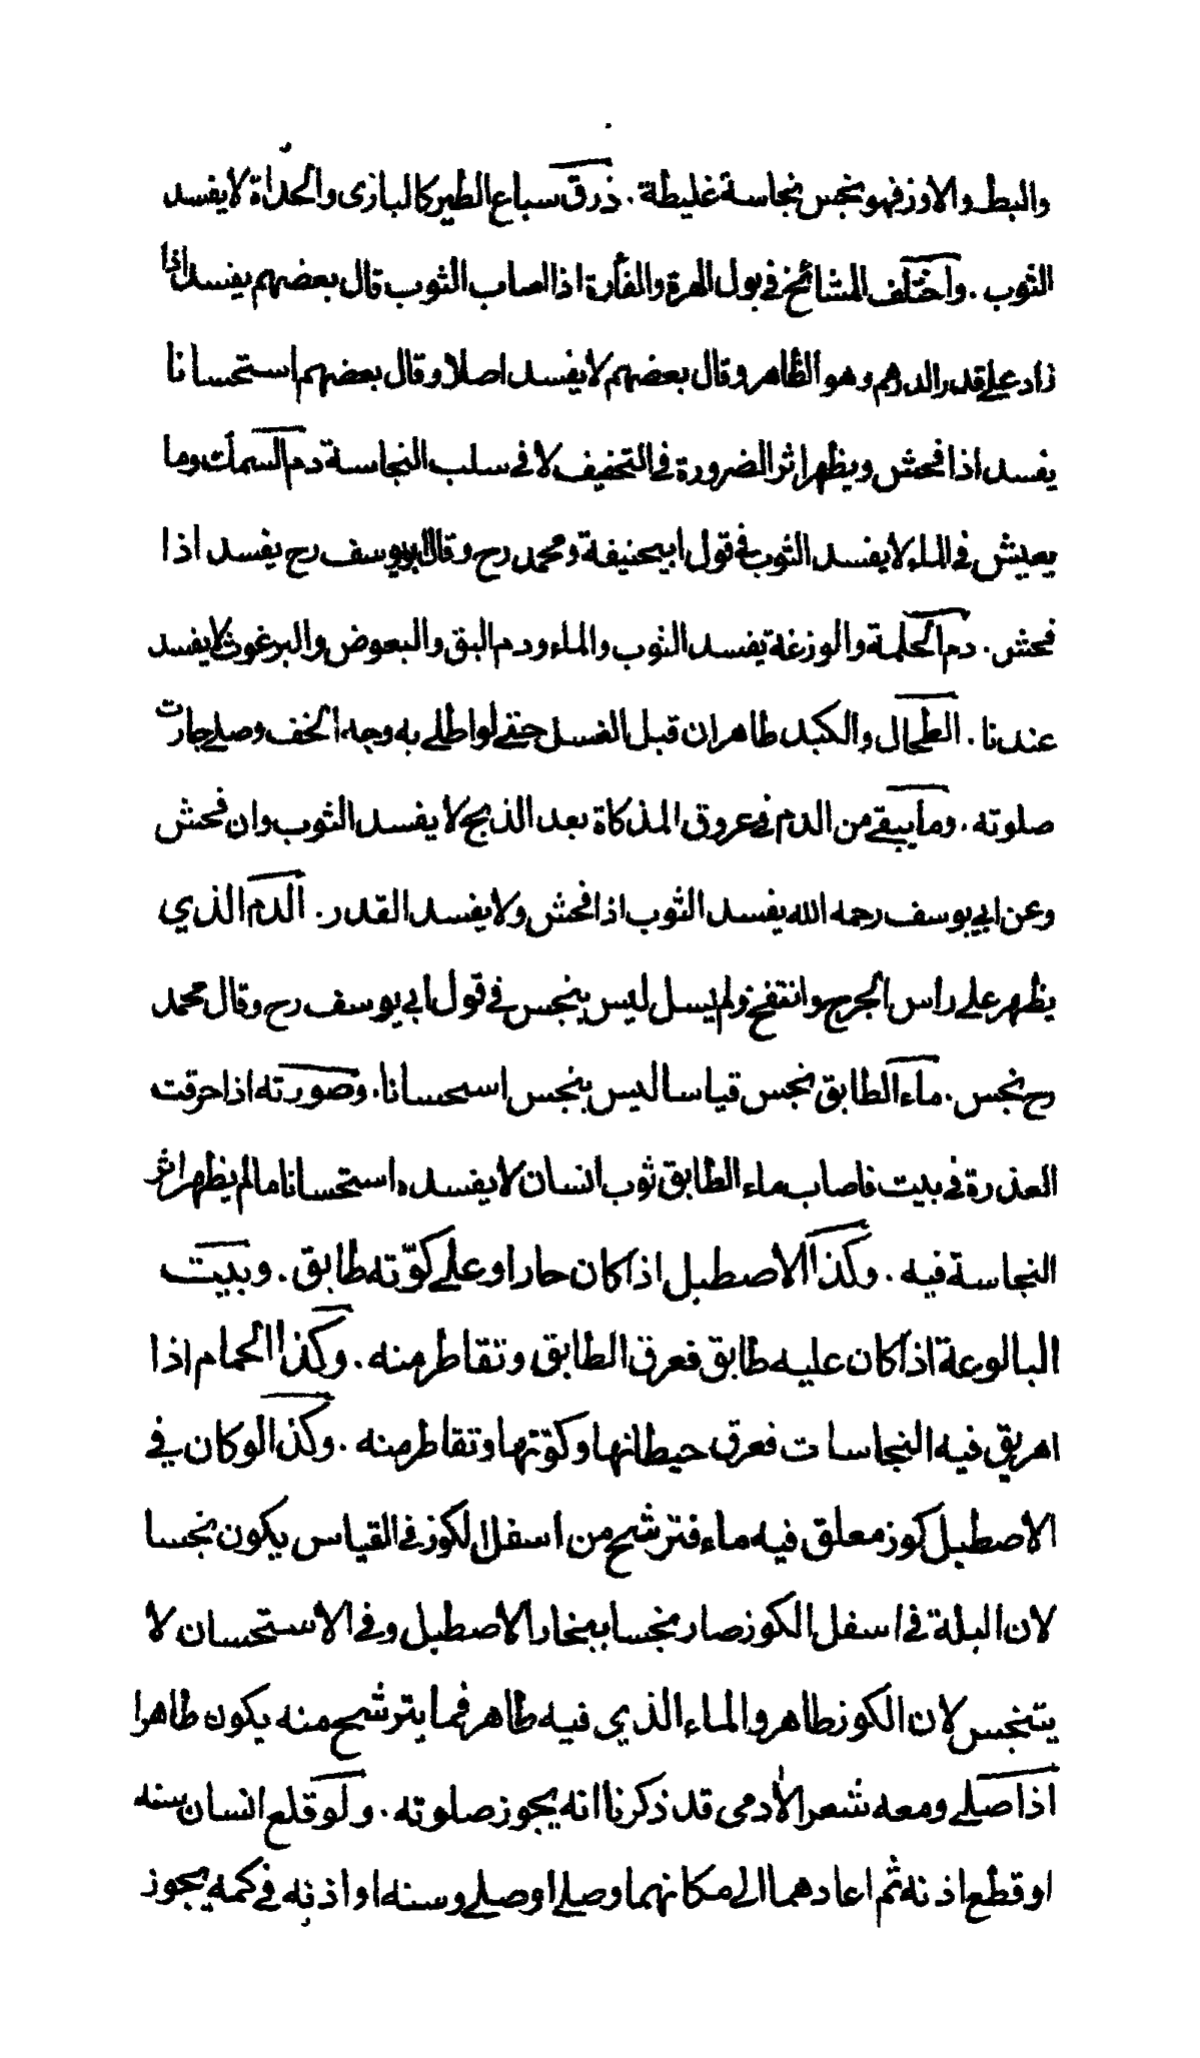 والبط والاوز فهو نجس نجاسة غليظة . ذرق سباع الطير كالبازى والحدّأة لا يفسد
الثوب . واختلف المشائخ في بول الهرة والفأرة اذا اصاب الثوب قال بعضهم يفسد اذا
زاد على قدر الدرهم وهو الظاهر وقال بعضهم لا يفسد اصلا وقال بعضهم استحسانا
يفسد اذا فحش ويظهر اثر الضرورة في التخفيف لا في سلب النجاسة دم السمك وما
يعيش في الماء لا يفسد الثوب في قول ابيحنيفة ومحمد رح وقال ابو يوسف رح يفسد اذا
فحش . دم الحلمة والوزغة يفسد الثوب والماء ودم البق والبعوض والبرغوث لا يفسد
عندنا . الطحال والكبد طاهران قبل الغسل حتى لو اطلى به وجه الخف وصلى جازت
صلوته . وما يبقى من الدم في عروق المذكاة بعد الذبح لا يفسد الثوب وان فحش
وعن ابي يوسف رحمه الله يفسد الثوب اذا فحش ولا يفسد القدر . الدم الذي
يظهر على راس الجرح وانتفخ ولم يسل ليس بنجس في قول ابي يوسف رح وقال محمد
رح نجس . ماء الطابق نجس قياسا ليس بنجس استحسانا . وصورته اذا حرقت
العذرة في بيت فاصاب ماء الطابق ثوب انسان لا يفسده استحسانا مالم يظهر اثر
النجاسة فيه . وكذا الاصطبل اذا كان حارا وعلى كوّته طابق . وبيت
البالوعة اذا كان عليه طابق فعرق الطابق وتقاطر منه . وكذا الحمام اذا
اهريق فيه النجاسات فعرق حيطانها وكوّتها وتقاطر منه . وكذا لو كان في
الاصطبل كوز معلق فيه ماء فترشح من اسفل الكوز في القياس يكون نجسا
لان البلة في اسفل الكوز صار نجسا ببخار الاصطبل وفي الاستحسان لا
يتنجس لان الكوز طاهر والماء الذي فيه طاهر فما يترشح منه يكون طاهرا
اذا صلى ومعه شعر الآدمى قد ذكرنا انه يجوز صلوته . ولو قلع انسان سنه
او قطع اذنه ثم اعادهما الى مكانهما وصلى او صلى وسنه او اذنه في كمه يجوز